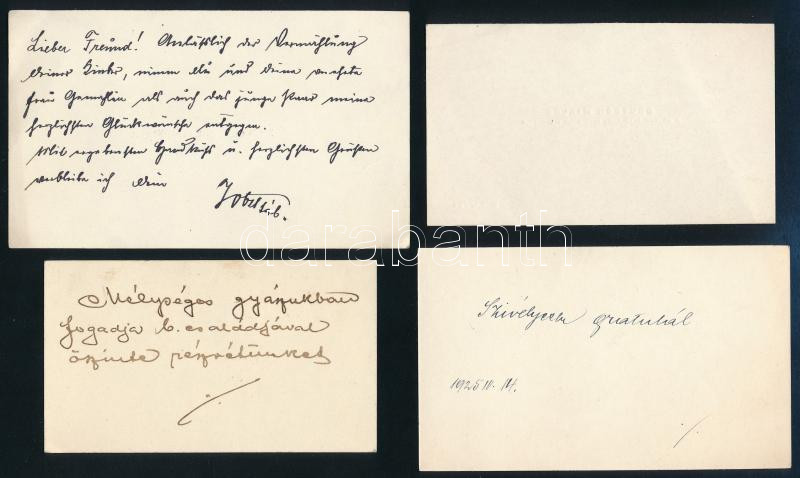 Lieber Freund! Anläßlich der Vermählung
deines Kindes, nimm du und deine verehrte
Frau Gemahlin als auch das junge Paar meine
herzlichsten Glückwünsche entgegen.
Mit ergebensten Handkuß u. herzlichsten Grüßen
verbleibe ich dein
Mélységes gyászukban
fogadja b. családjával
őszinte részvétünket
Szívélyesen gratulál
1925 IV. 14.
darabanth